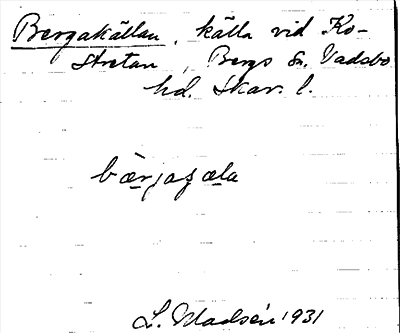 Bergakällan, källa vid Ko-
stretan, Bergs sn. Vadsbo
hd. Skar. l.
bærjaȿæla
L. Madsén 1931